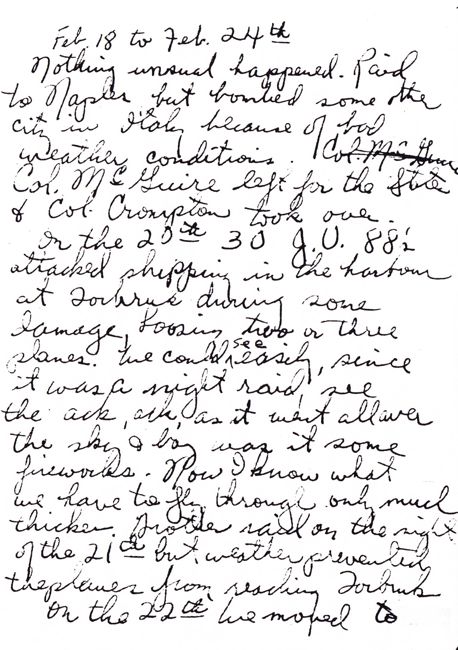 Feb. 18 to Feb. 24th
Nothing unusual happened. Raid
to Naples but bombed some other
city in Italy because of bad
weather conditions. Col. McGuire
Col. McGuire left for the States
& Col. Crompton took over.
On the 20th 30 J.U. 88's
attacked shipping in the harbour
at Torbruk during some
damage, loosing two or three
planes. We could see easily, since
it was a night raid, see
the ack, ack, as it went all over
the sky & boy was it some
fireworks. Now I know what
we have to fly through only much
thicker. Another raid on the night
of the 21st but weather prevented
the planes from reaching Torbruk
On the 22th we moved to